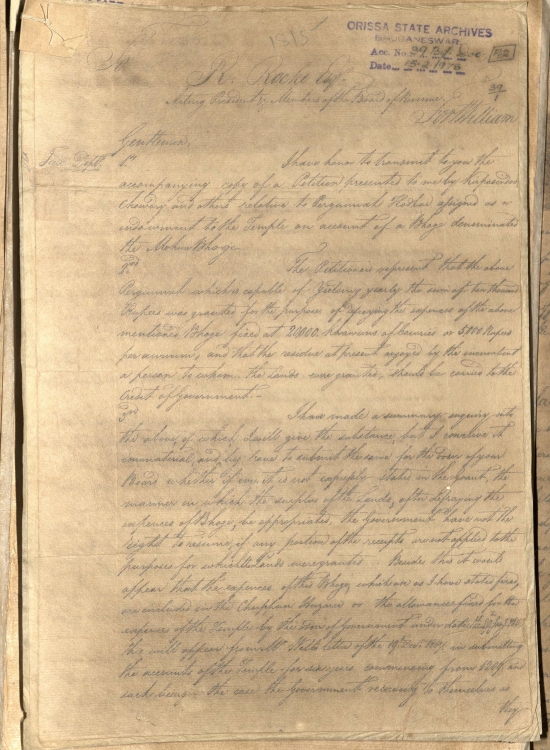 1815
ORISSA STATE ARCHIVES
BHUBANESWAR
Acc. No.
Date 18-2-1976
To
R. Rocke Esqr.
Acting President & Members of the Board of Revenue
Fort William
Gentlemen,
1st I have honor to transmit to you the
accompanying copy of a Petition presented to me by
Chowdry and others relative to Pergunnah assigned as a
endowment to the Temple on account of a Bhoge denominated
the Mohun Bhoge.
2nd The Petitioners represent that the above
Pergunnah which is capable of yielding yearly the sum of ten thousand
Rupees was granted for the purpose of defraying the expenses of the above
mentioned Bhoge fixed at 20,000 Khawuns of Cowries or 5,000 Rupees
per annum, and that the residue at present enjoyed by the incumbent
a person to whom the Lands were granted, should be carried to the
Credit of Government.
3rd I have made a summary enquiry into
the above, of which I will give the substance, but I conceive it
immaterial, and beg leave to submit the same for the of your
Board whether if when it is not expressly stated in the grant, the
manner in which the surplus of the Lands, after defraying the
expences of Bhoge, be appropriated, the Government have not the
right to resume, if any portion of the receipts are not applied to the
purposes for which the Lands were granted. Beside this it would
appear that the expences of this Bhoge which are as I have stated
are included in the or the allowances fixed for the
expence of the Temple by the of Government under date the
this will appear from Mr. letter of the 19th Decr. in submitting
the accounts of the Temple for six years, commencing from and
such being the case the Government receiving to themselves as
they